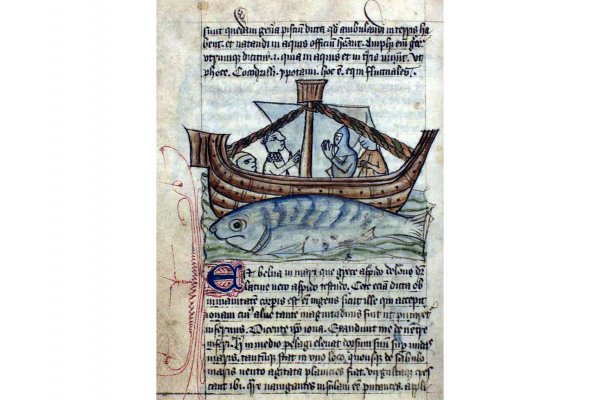 sunt quedam gen̄a pisciū dicta qd̄ ambulandi in terris ha
bent. et natandi in aquis officiū hēant. Amphi em̄ gre
utrumque dicitur .i. quia in aquis et in t̄ris uiuūt. ut
phoce. Cocodrilli. ypotami. hoc ē. equi fluctuales.
Est belua in mari que grece aspido delone dr̄
latine uero aspido testudo. Cete eciā dicta ob
inmanitatem corporis est em̄ ingens sicut ille qui accepit
ionam cuiꝰ alue tante magnitudinis fuit ut putaret
infernus. Dicente ip̄o iona. Exaudiuit me de uentre
inferi. H in medio pelagi eleuat dorsum suum sup̄ undas
maris. tantumque stat in uno loco. quousque de sabulo
maris uento agitata planicies fiat. uirgultaque cres
cant ibi. Qr̄ nauigantes insulam eē putantes. appli